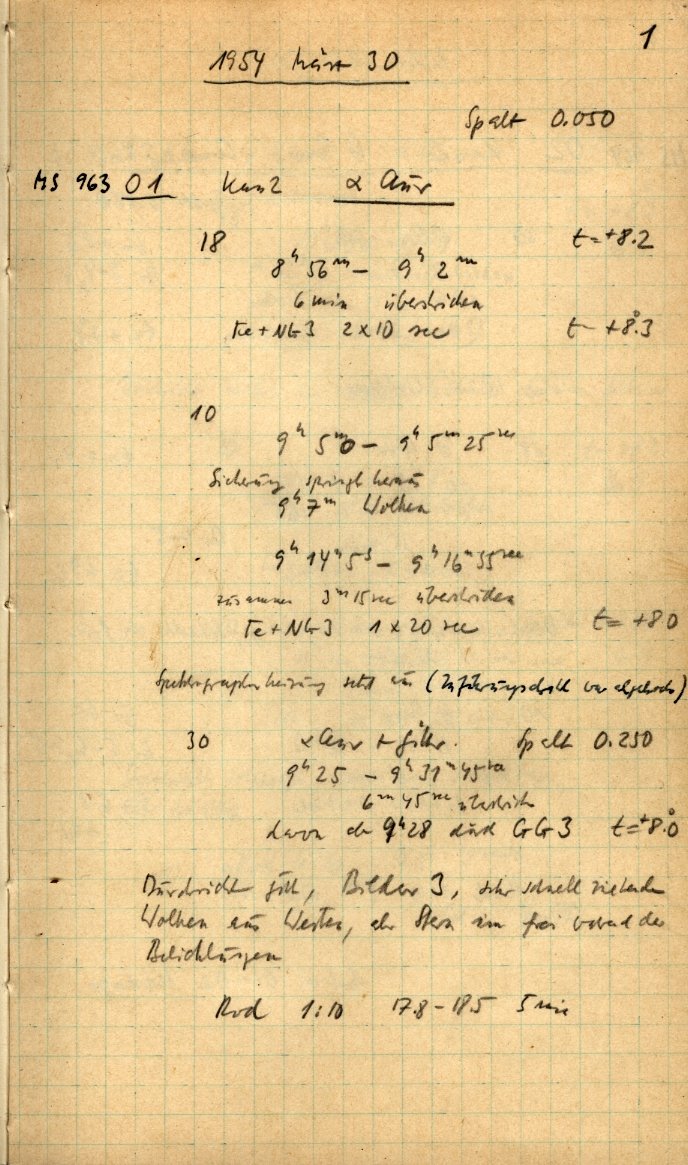 1
1954 März 30
Spalt 0.050
MS 963 01 Kam 2 α Aur
18 t=+8.2
8ʰ 56ᵐ – 9ʰ 2ᵐ
6 min überstrichen
Fe + NG3 2 x 10 sec t= +8.°3
10
9ʰ 5ᵐ0 – 9ʰ 5ᵐ 25ˢᵉᶜ
Sicherung springt heraus
9ʰ 7ᵐ Wolken
9ʰ 14ᵐ 5ˢ – 9ʰ 16ᵐ 55ˢᵉᶜ
zusammen 3ᵐ 15ˢᵉᶜ überstrichen
Fe + NG3 1 x 20 sec t= +8.0
Spektrographenheizung setzt aus (Zuführungsdraht war abgebrochen)
30 α Aur + Filter. Spalt 0.250
9ʰ 25 – 9ʰ 31ᵐ 45ˢᵉᶜ
6ᵐ 45ˢᵉᶜ überstrichen
davon ab 9ʰ28 durch GG3 t=+8.°0
Durchsicht gut, Bilder 3, sehr schnell ziehende
Wolken aus Westen, aber Stern frei während der
Belichtungen
Rod 1:10 17.8 – 18.5 5 min